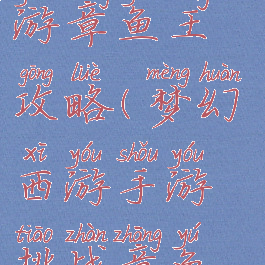 游章鱼王
gōng lüè mèng huàn
攻略(梦幻
xī yóu shǒu yóu
西游手游
tiāo zhàn zhāng yú
挑战章鱼